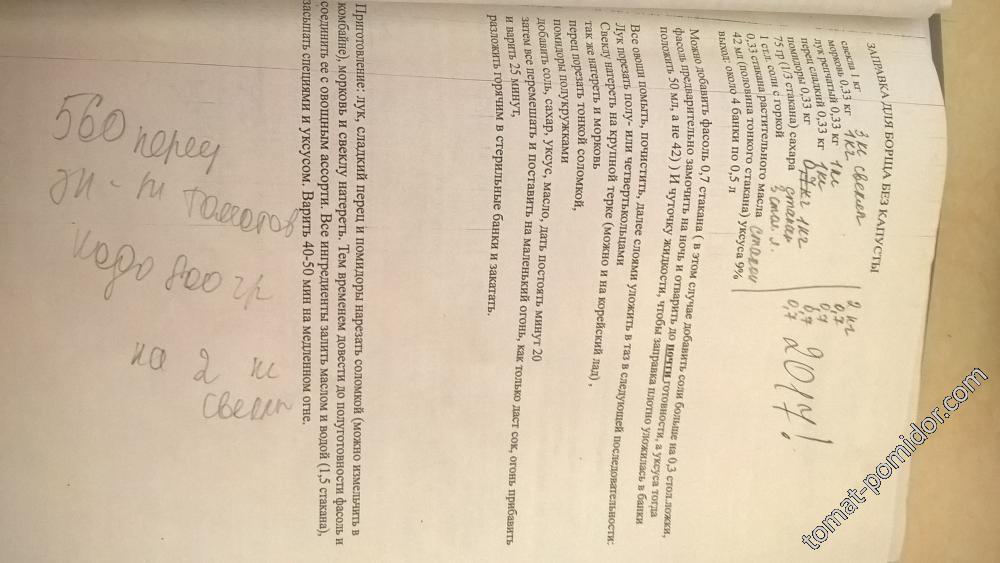 ЗАПРАВКА ДЛЯ БОРЩА БЕЗ КАПУСТЫ
свекла 1 кг 3 кг свекл 2 кг
морковь 0,33 кг 1 кг 0,7
лук репчатый 0,33 кг 1 кг 0,7
перец сладкий 0,33 кг 1 кг 0,7
помидоры 0,33 кг 1 кг 0,7
75 гр (1/3 стакана) сахара стакан
1 ст.л. соли с горкой 3 стол. л.
0,33 стакана растительного масла стакан
42 мл (половина тонкого стакана) уксуса 9%
выход: около 4 банки по 0,5 л
2017!
Можно добавить фасоль 0,7 стакана ( в этом случае добавить соли больше на 0,3 стол.ложки,
фасоль предварительно замочить на ночь и отварить до почти готовности, а уксуса тогда
положить 50 мл, а не 42) ) И чуточку жидкости, чтобы заправка плотно уложилась в банки
Все овощи помыть, почистить, далее слоями уложить в таз в следующей последовательности:
Лук порезать полу- или четвертькольцами
Свеклу натереть на крупной терке (можно и на корейский лад) ,
так же натереть и морковь
перец порезать тонкой соломкой,
помидоры полукружками
добавить соль, сахар, уксус, масло, дать постоять минут 20
затем все перемешать и поставить на маленький огонь, как только даст сок, огонь прибавить
и варить 25 минут,
разложить горячим в стерильные банки и закатать.
Приготовление: лук, сладкий перец и помидоры нарезать соломкой (можно измельчить в
комбайне), морковь и свеклу натереть. Тем временем довести до полуготовности фасоль и
соединить ее с овощным ассорти. Все ингредиенты залить маслом и водой (1,5 стакана),
засыпать специями и уксусом. Варить 40-50 мин на медленном огне.
560 перец
томатов
надо 800 гр
на 2 кг
свекл
tomat-pomidor.com